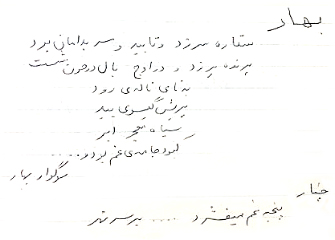 بهار
ستاره سرزد و تابید و سر بدامان برد
پرنده پر زد و در اوج بال در خون شست
ناله‌ی رود
پریش گیسوی بید
سیاه معجر ابر
کبود جامه‌ی غم بود و.....
سوگوار بهار
چنار
پنجه غم میفشرد .... بر سر